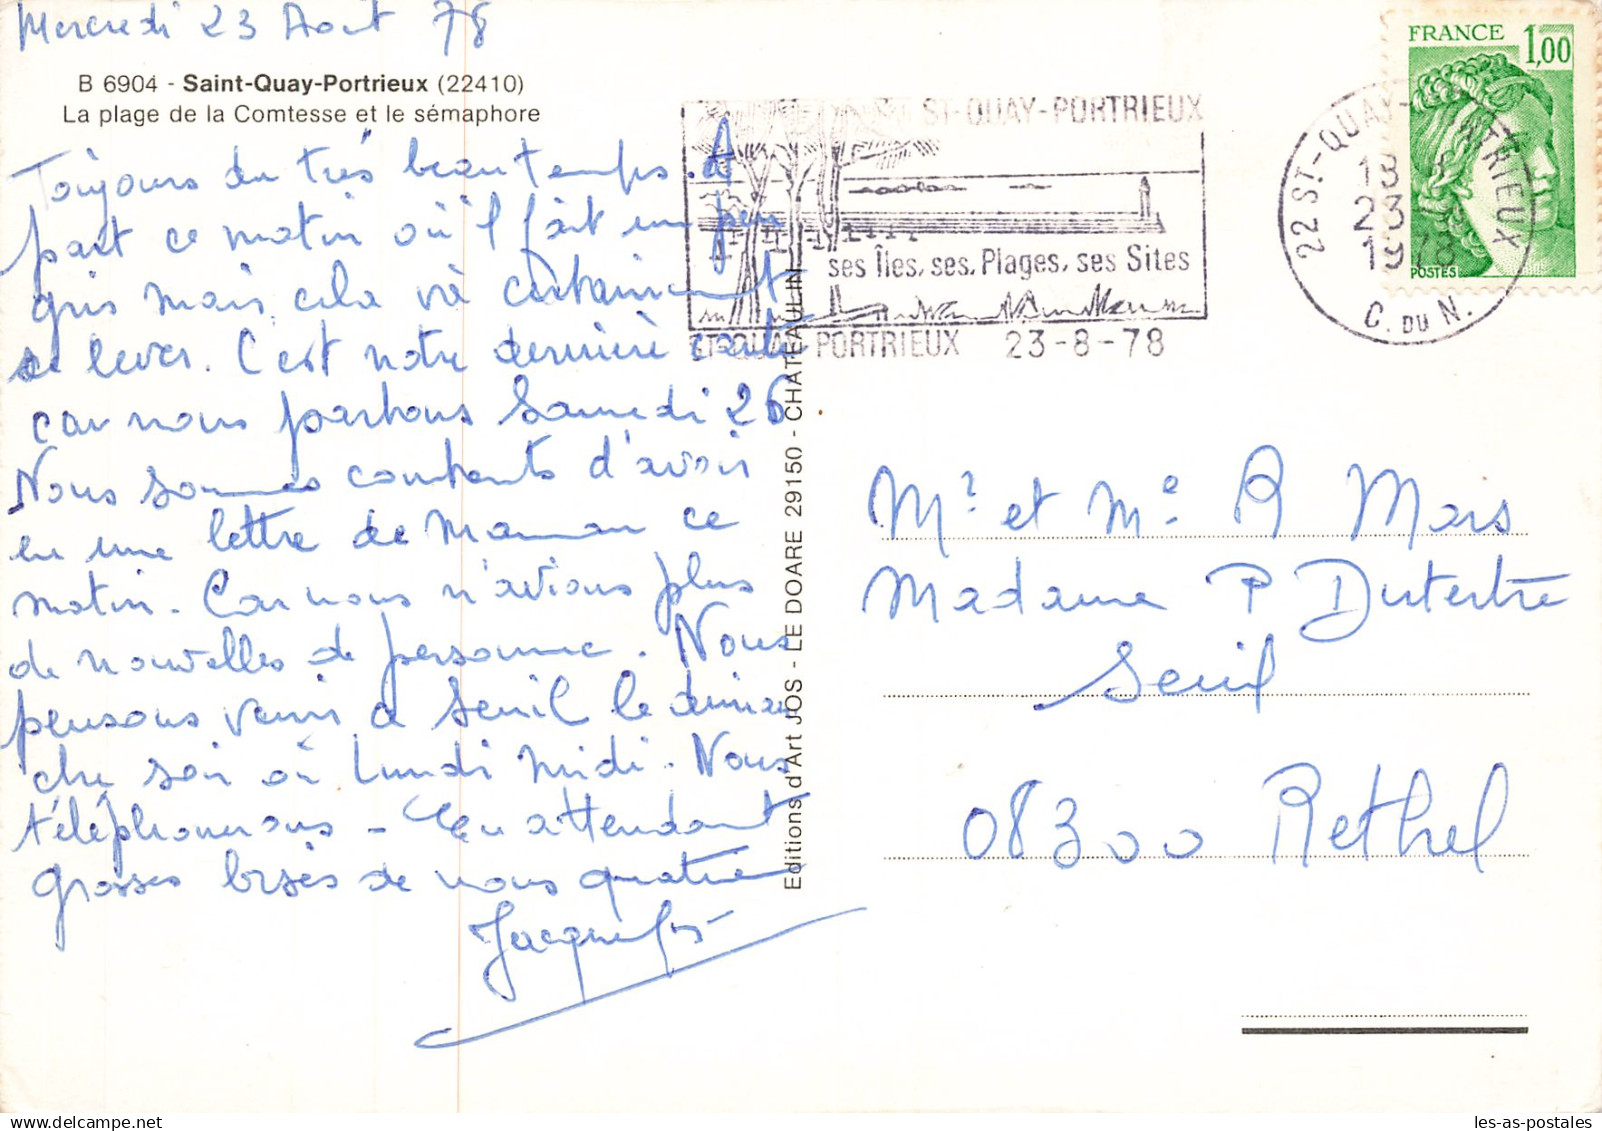 Mercredi 23 Aout 78
B 6904 - Saint-Quay-Portrieux (22410)
La plage de la Comtesse et le sémaphore
Toujours du très beau temps. A
part ce matin où il fait un peu
gris mais cela va certainement
se lever. C'est notre dernière carte
car nous partons Samedi 26
Nous sommes contents d'avoir
eu une lettre de Maman ce
matin. Car nous n'avions plus
de nouvelles de personne. Nous
pensons venir à Seuil le diman
che soir où Lundi midi. Nous
téléphonerons - En attendant
grosses bises de nous quatre
Editions d'Art JOS - LE DOARE 29150 - CHATEAULIN
ST-QUAY-PORTRIEUX
ses Îles, ses Plages, ses Sites
ST-QUAY PORTRIEUX 23-8-78
22 ST-QUAY-PORTRIEUX
23
1978
C. DU N.
FRANCE 1,00
POSTES
Mr et Me R Mars
Madame P Dutertre
Seuil
08300 Rethel
les-as-postales